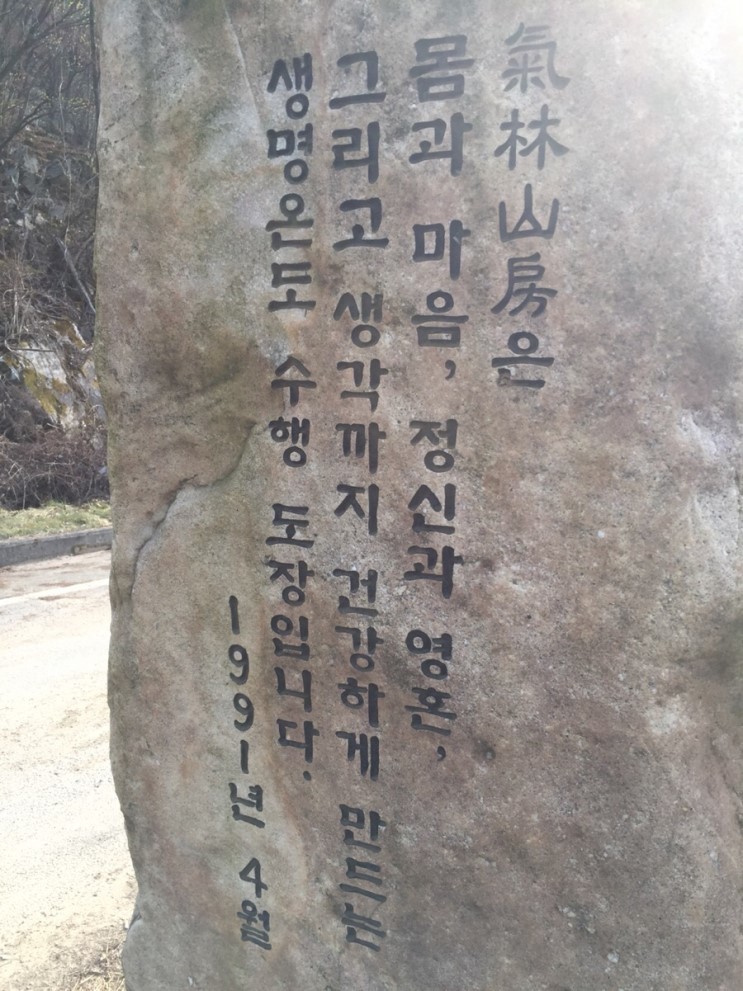 氣林山房은
몸과 마음, 정신과 영혼,
그리고 생각까지 건강하게 만드는
생명온도 수행 도장입니다.
1991년 4월